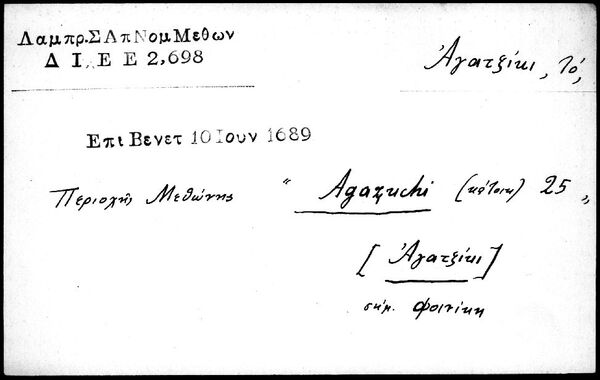 Λαμπρ.ΣΑπΝομΜεθων
Δ Ι.Ε Ε 2,698
Ἀγατζίκι, Τό,
Επι Βενετ 10 Ιουν 1689
Περιοχῆς Μεθώνης " Agazuchi (κάτοικ) 25 "
[Ἀγατζίκι]
σήμ. Φοινίκη